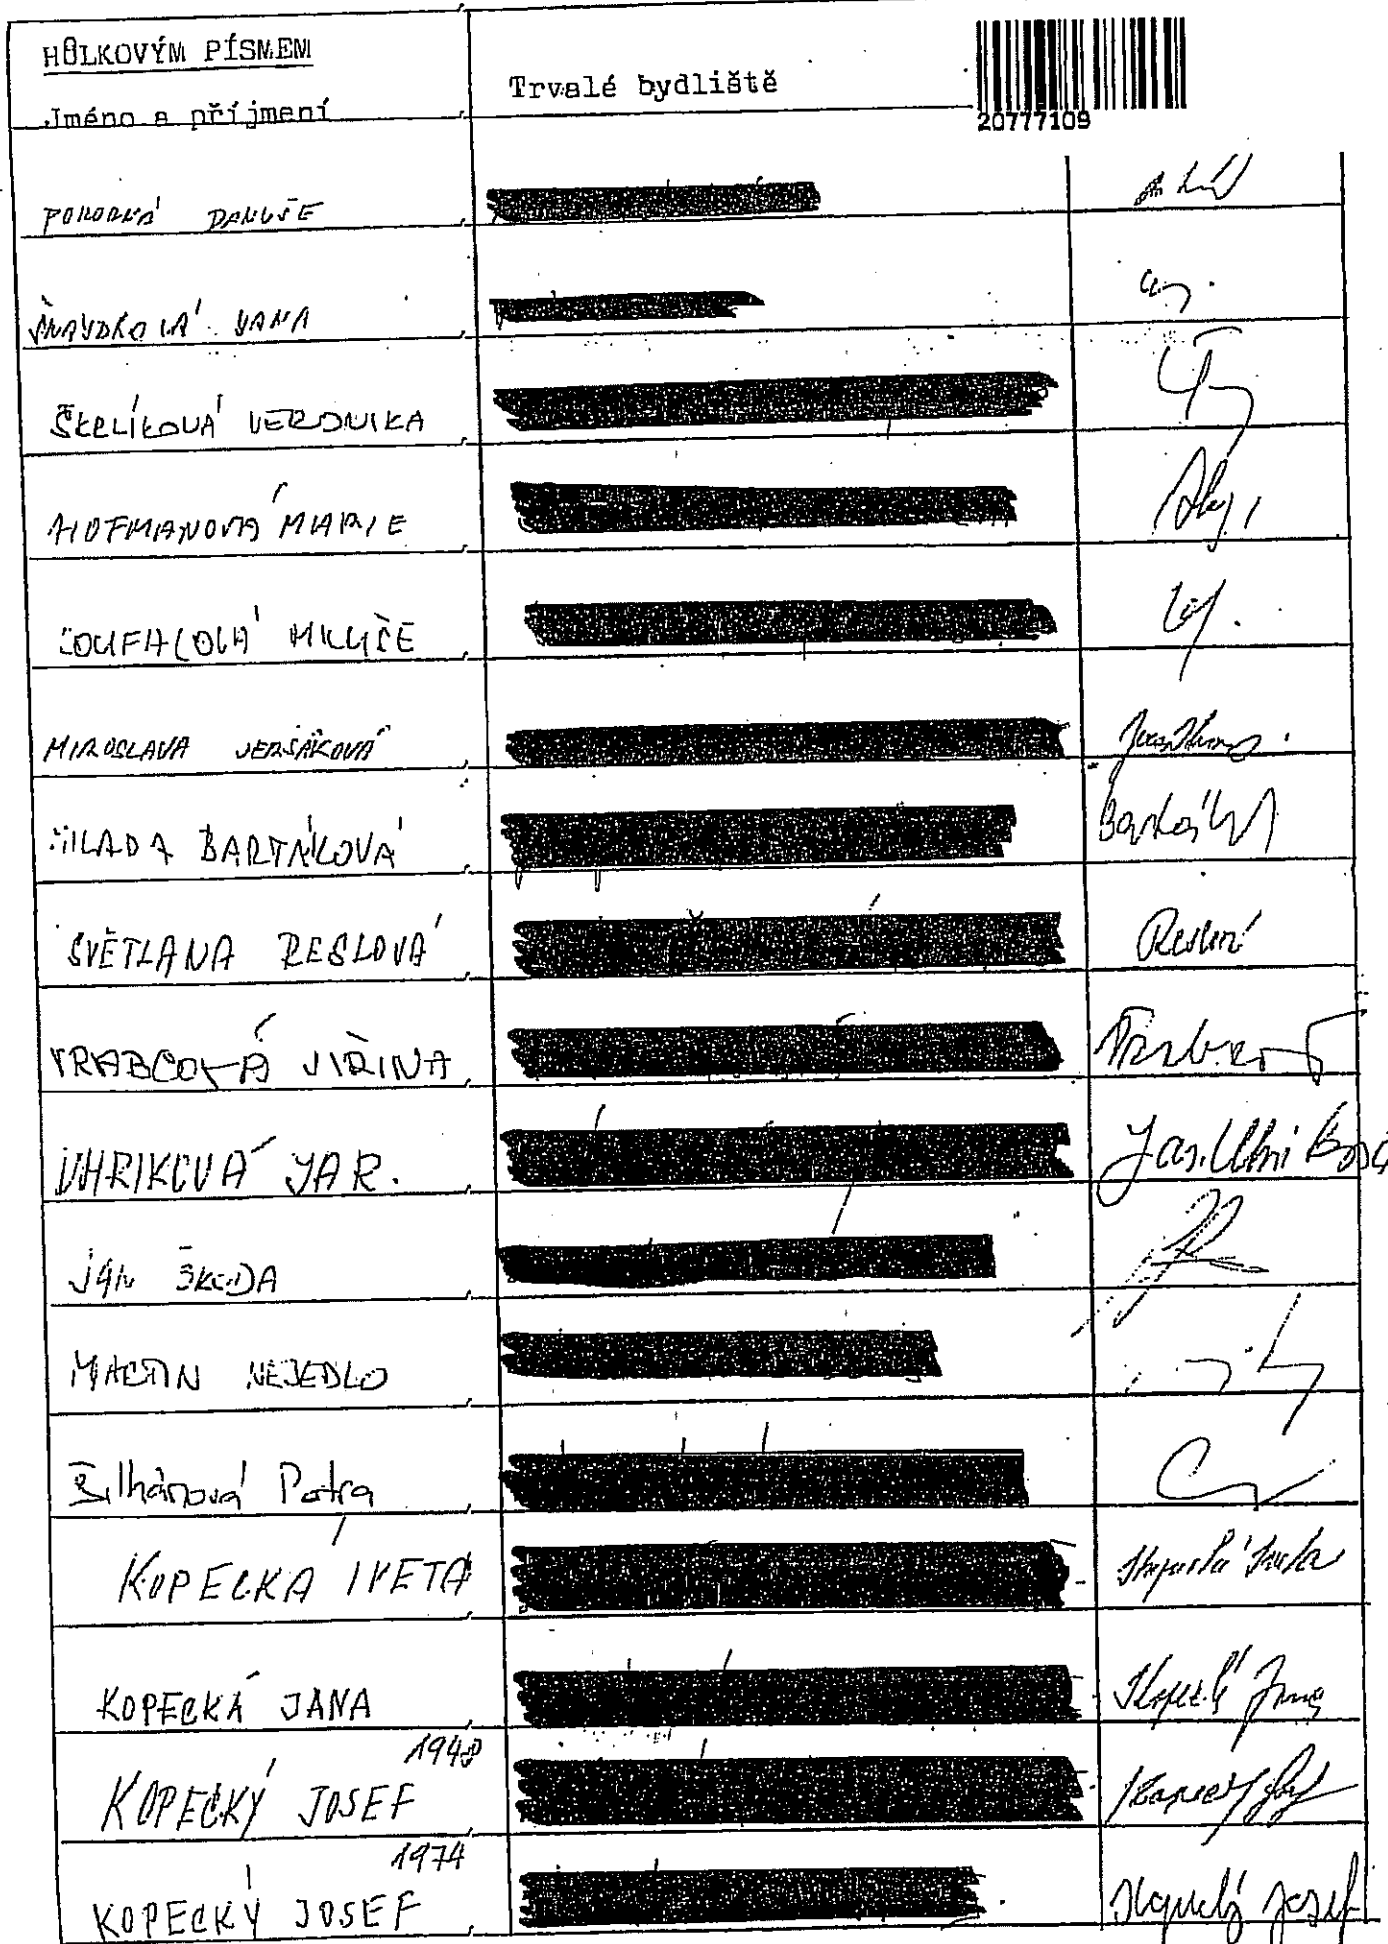 HŮLKOVÝM PÍSMEM
Jméno a příjmení
Trvalé bydliště
20777109
POKORNÁ DANUŠE
ŠNAJDROVÁ JANA
ŠKELÍKOVÁ VERONIKA
HOFMANOVÁ MARIE
MIROSLAVA JERSÁKOVÁ
MILADA BARTÁKOVÁ
Bartáková
SVĚTLANA RESLOVÁ
Reslová
VRABCOVÁ JIŘINA
UHRIKOVÁ JAR.
Jar. Uhríková
JAN ŠKODA
MARTIN NEJEDLO
Petra
KOPECKÁ IVETA
Kopecká Iveta
KOPECKÁ JANA
Kopecká Jana
1948
KOPECKÝ JOSEF
Kopecký Josef
1974
KOPECKÝ JOSEF
Kopecký Josef